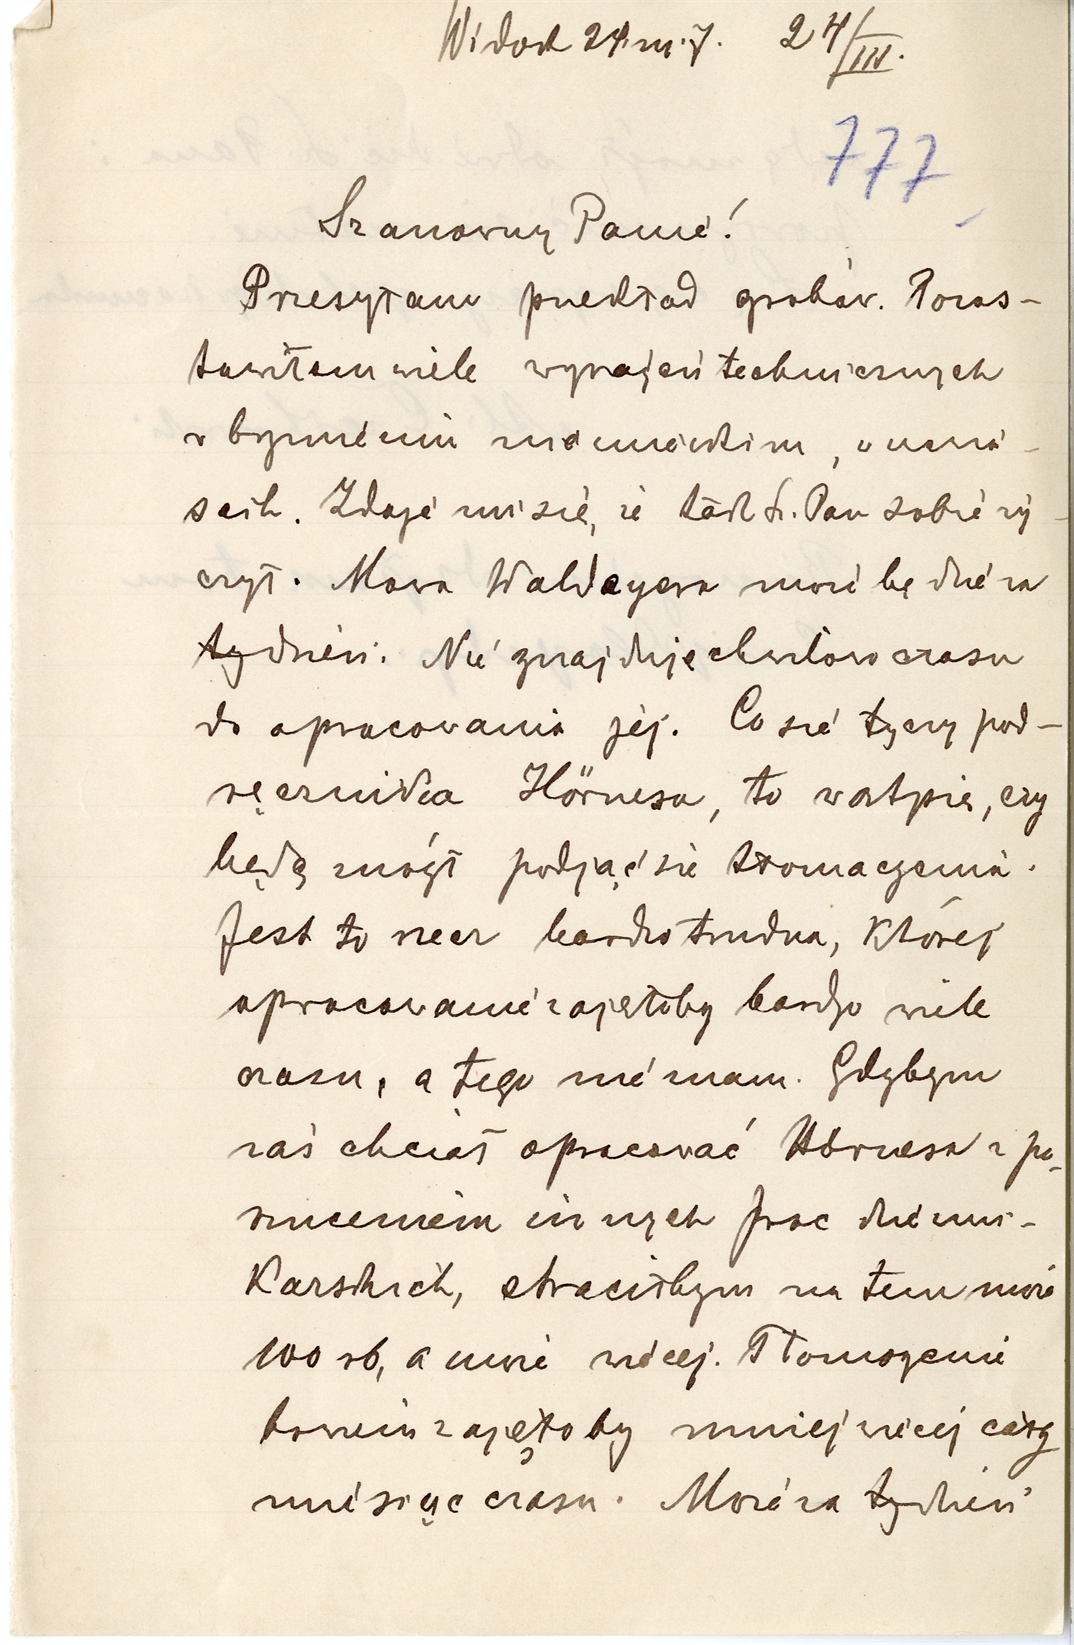 Widok 24. m. 7. 24/III.
777
Szanowny Panie!
Przesyłam przekład grobów. Pozos-
tawiłem wiele wyrażeń technicznych
w brzmieniu niemieckim, w nawia-
sach. Zdaje mi się, że tak S. Pan sobie ży-
czył. Mowa Waldeyera może będzie za
tydzień. Nie znajduję chwilowo czasu
do opracowania jej. Co się tyczy pod-
ręcznika Hörnesa, to wątpię, czy
będę mógł podjąć się tłomaczenia.
Jest to rzecz bardzo trudna, której
opracowanie zajęłoby bardzo wiele
czasu, a tego nie mam. Gdybym
zaś chciał opracować Hörnesa z po-
rzuceniem innych prac dzienni-
karskich, straciłbym na tem może
100 rb, a może więcej. Tłomaczenie
bowiem zajęłoby mniej więcej cały
miesiąc czasu. Może za tydzień